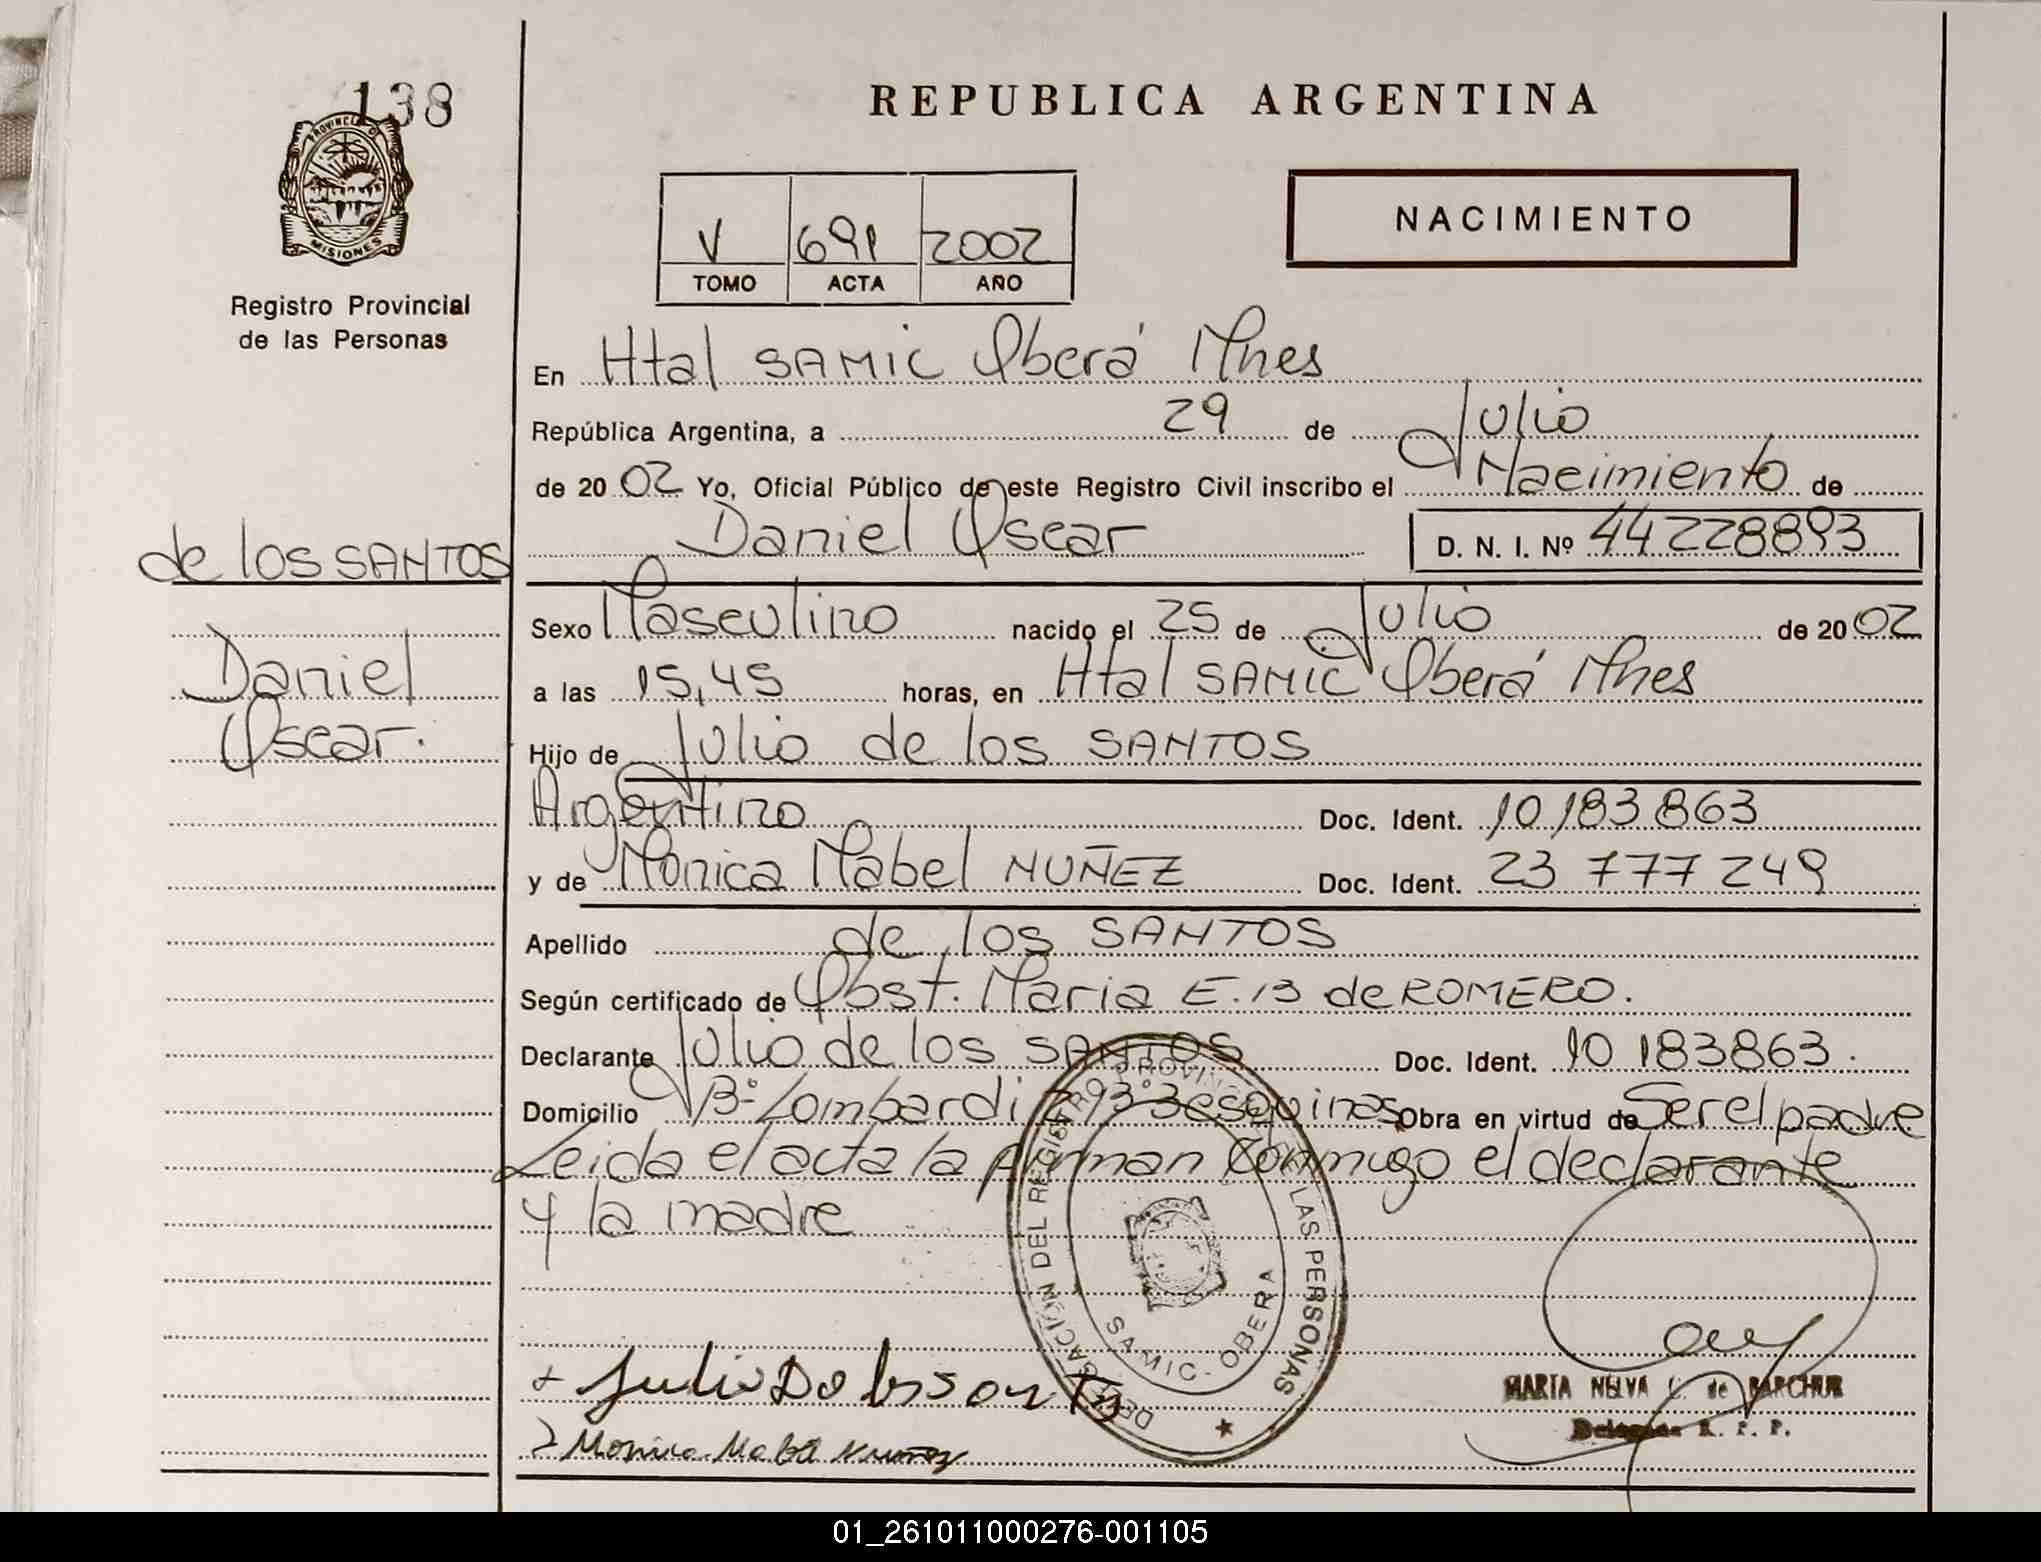 138
PROVINCIA DE
MISIONES
Registro Provincial
de las Personas
REPUBLICA ARGENTINA
V 691 2002
TOMO ACTA AÑO
NACIMIENTO
En Htal SAMIC Oberá Mnes
República Argentina, a 29 de Julio
de 20 02 Yo, Oficial Público de este Registro Civil inscribo el Nacimiento de
Daniel Oscar D. N. I. Nº 44228893
de los SANTOS
Daniel
Oscar.
Sexo Masculino nacido el 25 de Julio de 20 02
a las 15,45 horas, en Htal SAMIC Oberá Mnes
Hijo de Julio de los SANTOS
Argentino Doc. Ident. 10 183 863
y de Mónica Mabel NUÑEZ Doc. Ident. 23 777 249
Apellido de los SANTOS
Según certificado de Obst. Maria E. B de ROMERO.
Declarante Julio de los SANTOS Doc. Ident. 10 183863.
Domicilio Bº Lombardi 93º 3 esquinas Obra en virtud de Ser el padre
Leida el acta la firman conmigo el declarante
y la madre
DELEGACIÓN DEL REGISTRO PROVINCIAL DE LAS PERSONAS
SAMIC - OBERA
Monica Mabel Nuñez
MARIA NELVA de BARCHUR
Delegada R. P. P.
01_261011000276-001105